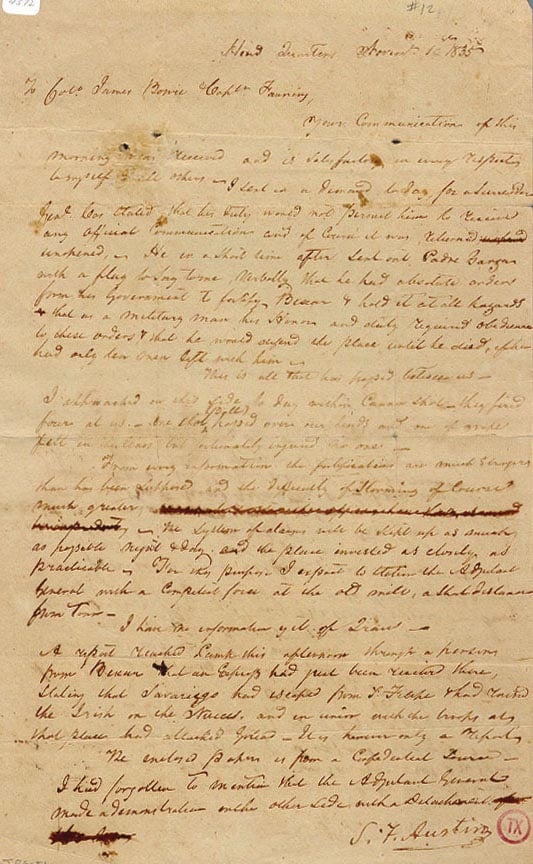 #12
Head Quarters Novemr. 1st 1835
To Colo. James Bowie & Captn Fanning,
Your Communication of this
morning was received and is satisfactory in every respect
to myself & all others — I sent in a demand to day for a surrender
Genl. Cos stated that his duty would not permit him to receive
any official Communications and of Course it was returned
unopened, — He in a short time after sent out Padre Garza
with a flag to say to me, verbally that he had absolute orders
from his Government to fortify Bexar & hold it at all hazards
& that as a military man his Honor and duty required obedience
to these orders & that he would defend the place until he died, if he
had only ten men left with him —
This is all that has passed between us —
I approached on this side to day within Cannon shot — they fired
four at us. — one shot passed over our heads and one of grape
fell in but fortunately injured no one —
From every information the fortifications are much stronger
than has been supposed and the difficulty of storming of Course
much greater
— The System of alarms will be kept up as much
as possible night & day and the place invested as closely as
practicable — For this purpose I expect to station the Adjutant
General with a Competent force at the old mill, a short distance
from Town —
I have no information yet of Travis —
A report reached Camp this afternoon through a person
from Bexar that an Express had just been received there,
stating that Savariego had escaped from S. Felipe & had
the Irish on the Nueces, and in union with the troops at
that place had attacked Goliad — It is however only a report,
The enclosed papers is from a Confidential Source —
I had forgotten to mention that the Adjutant General
made a demonstration on the other side with a Detachment
S. F. Austin
TX